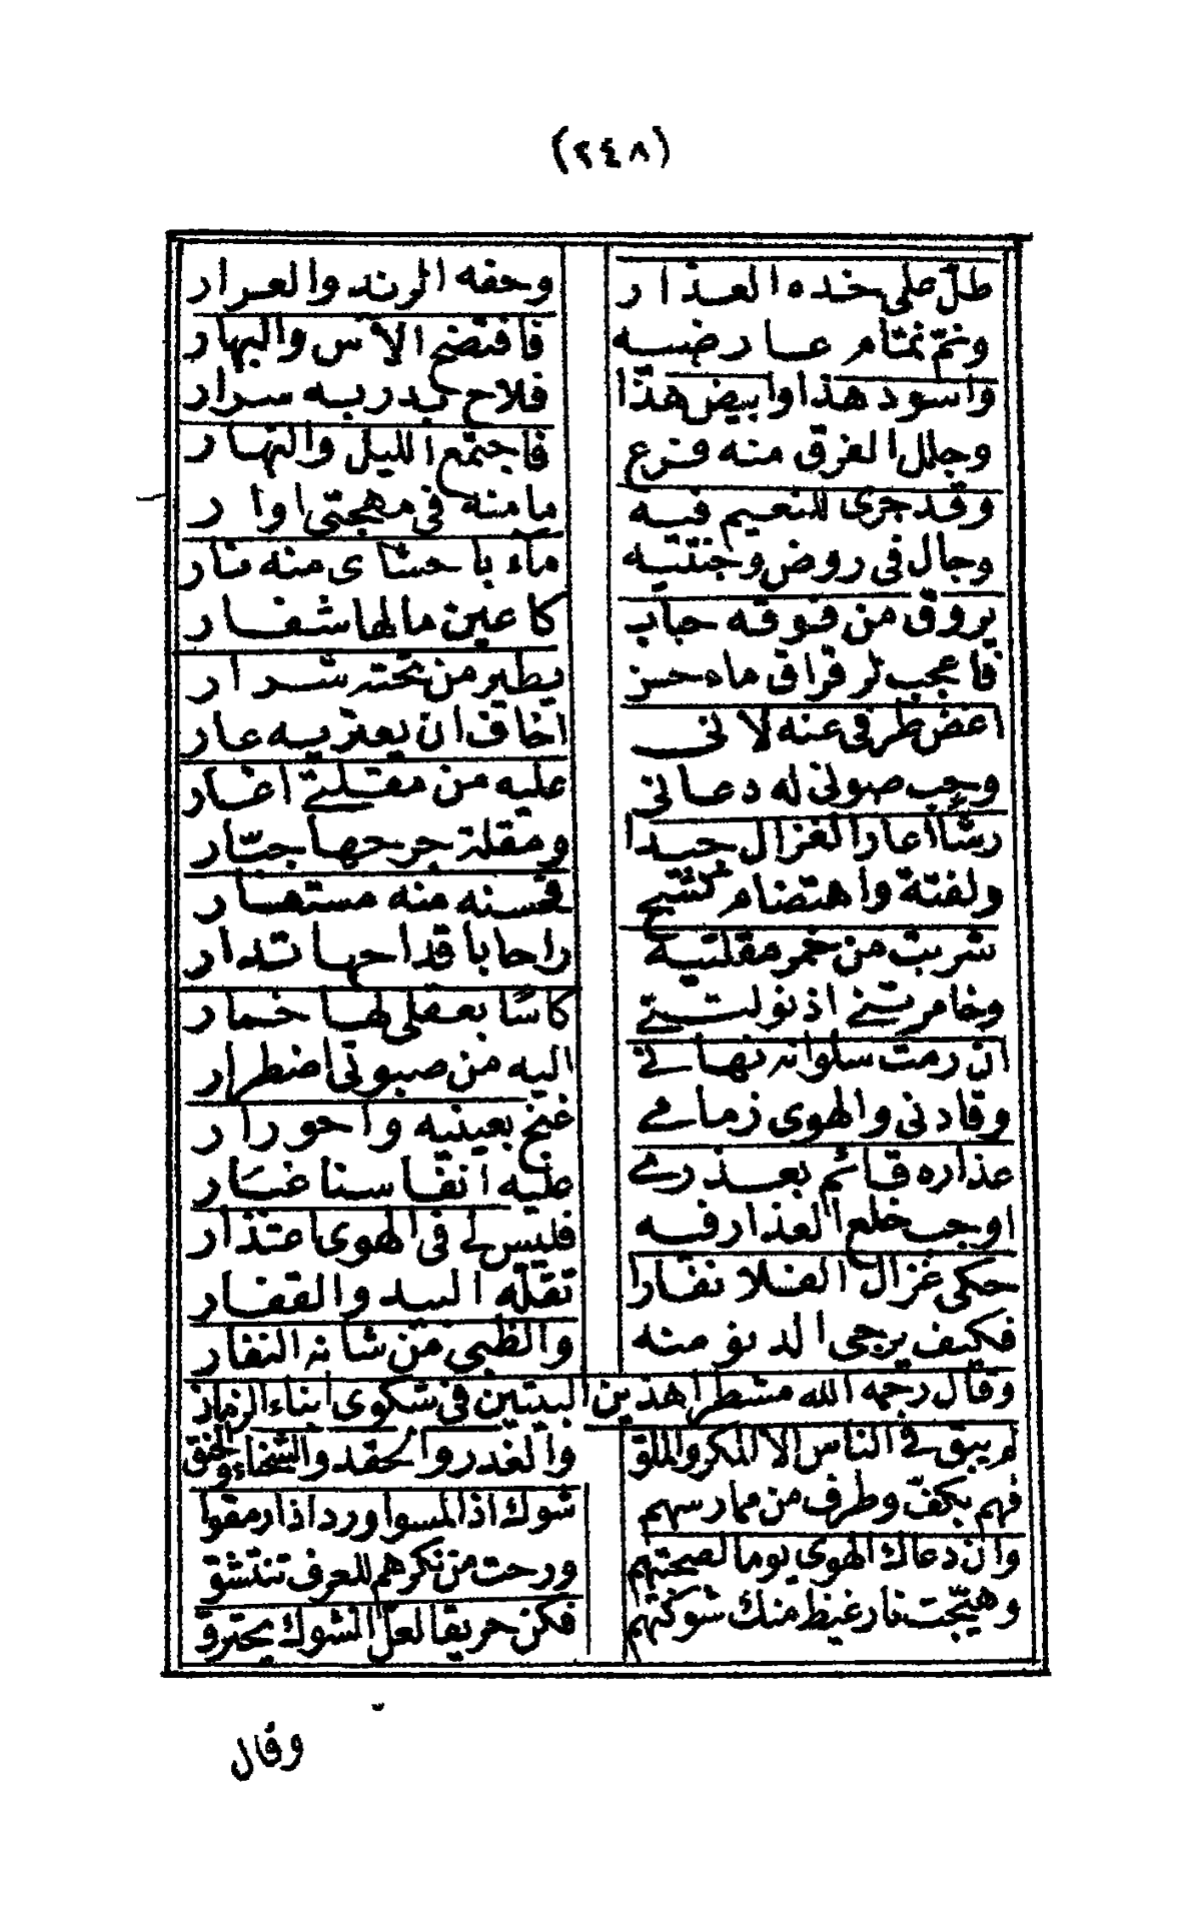 (٢٤٨)
طلّ على خده العذار وحفه الرند والعرار
ونمّ نمّام عارضيه فافتضح الآس والبهار
واسود هذا وابيض هذا فلاح بدر به سرار
وجلل الفرق منه فرع فاجتمع الليل والنهار
وقد جرى للنعيم فيه مامنه فى مهجتى اوار
وجال فى روض وجنتيه ماء باحشاى منه نار
يروق من فوقه حباب كاعين مالها شفار
فاعجب لرقراق ماء حسن يطير من تحته شرار
اغض طرفى عنه لانى اخاف ان يعتريه عار
وجب صونى له دعانى عليه من مقلتي اغار
رشأ اعار الغزال جيدا ومقلة جرحها جبار
ولفتة واهتضام كشح فحسنه منه مستعار
شربت من خمر مقلتيه راحا باقداحها تدار
وخامرتني اذ نولتني كأسا بعقلى لها خمار
ان رمت سلوانه نهاني اليه من صبوتى اضطرار
وقادنى والهوى زمامي غنج بعينيه واحورار
عذاره قائم بعذري عليه انفاسنا غبار
اوجب خلع العذار فيه فليس لي فى الهوى اعتذار
حكى غزال الفلا نفارا تقلّه البيد والقفار
فكيف يرجى الدنو منه والظبى من شانه النفار
وقال رحمه الله مشطرا هذين البيتين فى شكوى ابناء الزمان
لم يبق في الناس الا المكر والملق والغدر والحقد والشحناء والحنق
فهم بكفّ وطرف من ممارسهم شوك اذا لمسوا ورد اذا رمقوا
وان دعاك الهوى يوما لصحبتهم ورحت من نكرهم للعرف تنتشق
وهيّجت نار غيظ منك شوكتهم فكن حريقا لعلّ الشوك يحترق
وقال